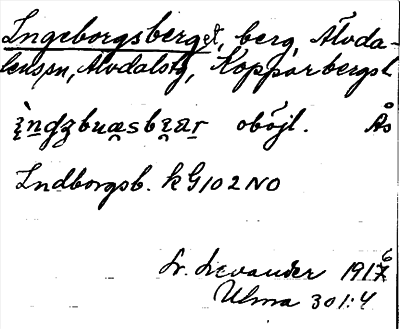 Ingeborgsberget, berg, Älvda-
lens sn, Älvdals tg, Kopparbergs l.
obójl. Ås
Indborgsb. kG102NO
Lr. Levander 1916
Ulma 301:4